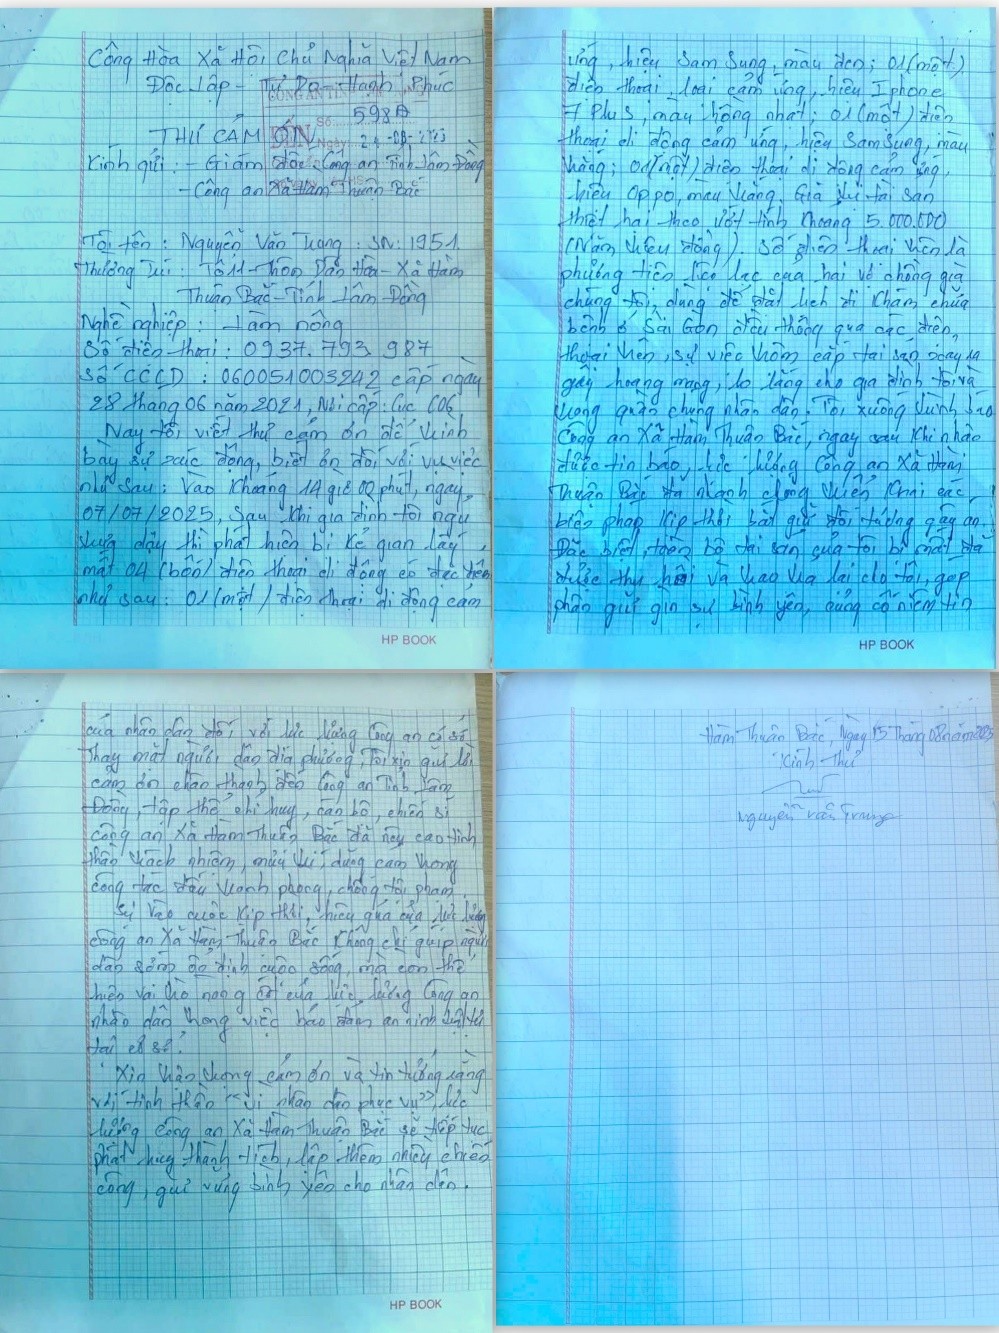 Cộng Hòa Xã Hội Chủ Nghĩa Việt Nam
Độc Lập - Tự Do - Hạnh Phúc
CÔNG AN TỈNH
598A
ĐẾN Số
Ngày
THƯ CẢM ƠN
Kính gửi: - Giám đốc Công an Tỉnh Lâm Đồng
- Công an Xã Hàm Thuận Bắc
Tôi tên: Nguyễn Văn Trung: SN: 1951
Thường Trú: Tổ 11 - Thôn Dân Hòa - Xã Hàm
Thuận Bắc - Tỉnh Lâm Đồng
Nghề nghiệp: Làm nông
Số điện thoại: 0937.793 987
Số CCCD: 060051003242 cấp ngày
28 tháng 06 năm 2021, Nơi cấp: Cục C06
Nay tôi viết thư cảm ơn để trình
bày sự xúc động, biết ơn đối với vụ việc
như sau: Vào khoảng 14 giờ 00 phút, ngày
07/07/2025, Sau khi gia đình tôi ngủ
thức dậy thì phát hiện bị kẻ gian lấy
mất 04 (bốn) điện thoại di động có đặc điểm
như sau: 01 (một) điện thoại di động cảm
HP BOOK
ứng, hiệu Sam Sung, màu đen; 01 (một)
điện thoại, loại cảm ứng, hiệu Iphone
7 Plus, màu hồng nhạt; 01 (một) điện
thoại di động cảm ứng, hiệu SamSung, màu
trắng; 01 (một) điện thoại di động cảm ứng,
hiệu Oppo, màu trắng. Giá trị tài sản
thiệt hại theo ước tính khoảng 5.000.000
(Năm triệu đồng). Số điện thoại trên là
phương tiện liên lạc của hai vợ chồng già
chúng tôi, dùng để đặt lịch đi khám chữa
bệnh ở Sài Gòn đều thông qua các điện
thoại trên, sự việc trộm cắp tài sản xảy ra
gây hoang mang, lo lắng cho gia đình tôi và
trong quần chúng nhân dân. Tôi xuống trình báo
Công an Xã Hàm Thuận Bắc, ngay sau khi nhận
được tin báo, lực lượng Công an Xã Hàm
Thuận Bắc đã nhanh chóng triển khai các
biện pháp kịp thời bắt giữ đối tượng gây án.
Đặc biệt, toàn bộ tài sản của tôi bị mất đã
được thu hồi và trao trả lại cho tôi, góp
phần giữ gìn sự bình yên, củng cố niềm tin
HP BOOK
của nhân dân đối với lực lượng Công an cơ sở.
Thay mặt người dân địa phương, Tôi xin gửi lời
cảm ơn chân thành đến Công an Tỉnh Lâm
Đồng, tập thể chỉ huy, cán bộ, chiến sĩ
công an Xã Hàm Thuận Bắc đã nêu cao tinh
thần trách nhiệm, mưu trí, dũng cảm trong
công tác đấu tranh phòng, chống tội phạm.
Sự vào cuộc kịp thời, hiệu quả của lực lượng
công an Xã Hàm Thuận Bắc không chỉ giúp người
dân sớm ổn định cuộc sống, mà còn thể
hiện vai trò nòng cốt của lực lượng Công an
nhân dân trong việc bảo đảm an ninh trật tự
tại cơ sở.
Xin trân trọng cảm ơn và tin tưởng rằng
với tinh thần "vì nhân dân phục vụ", lực
lượng công an Xã Hàm Thuận Bắc sẽ tiếp tục
phát huy thành tích, lập thêm nhiều chiến
công, giữ vững bình yên cho nhân dân.
HP BOOK
Hàm Thuận Bắc, Ngày 15 Tháng 08 năm 2025
"Kính Thư"
Nguyễn Văn Trung